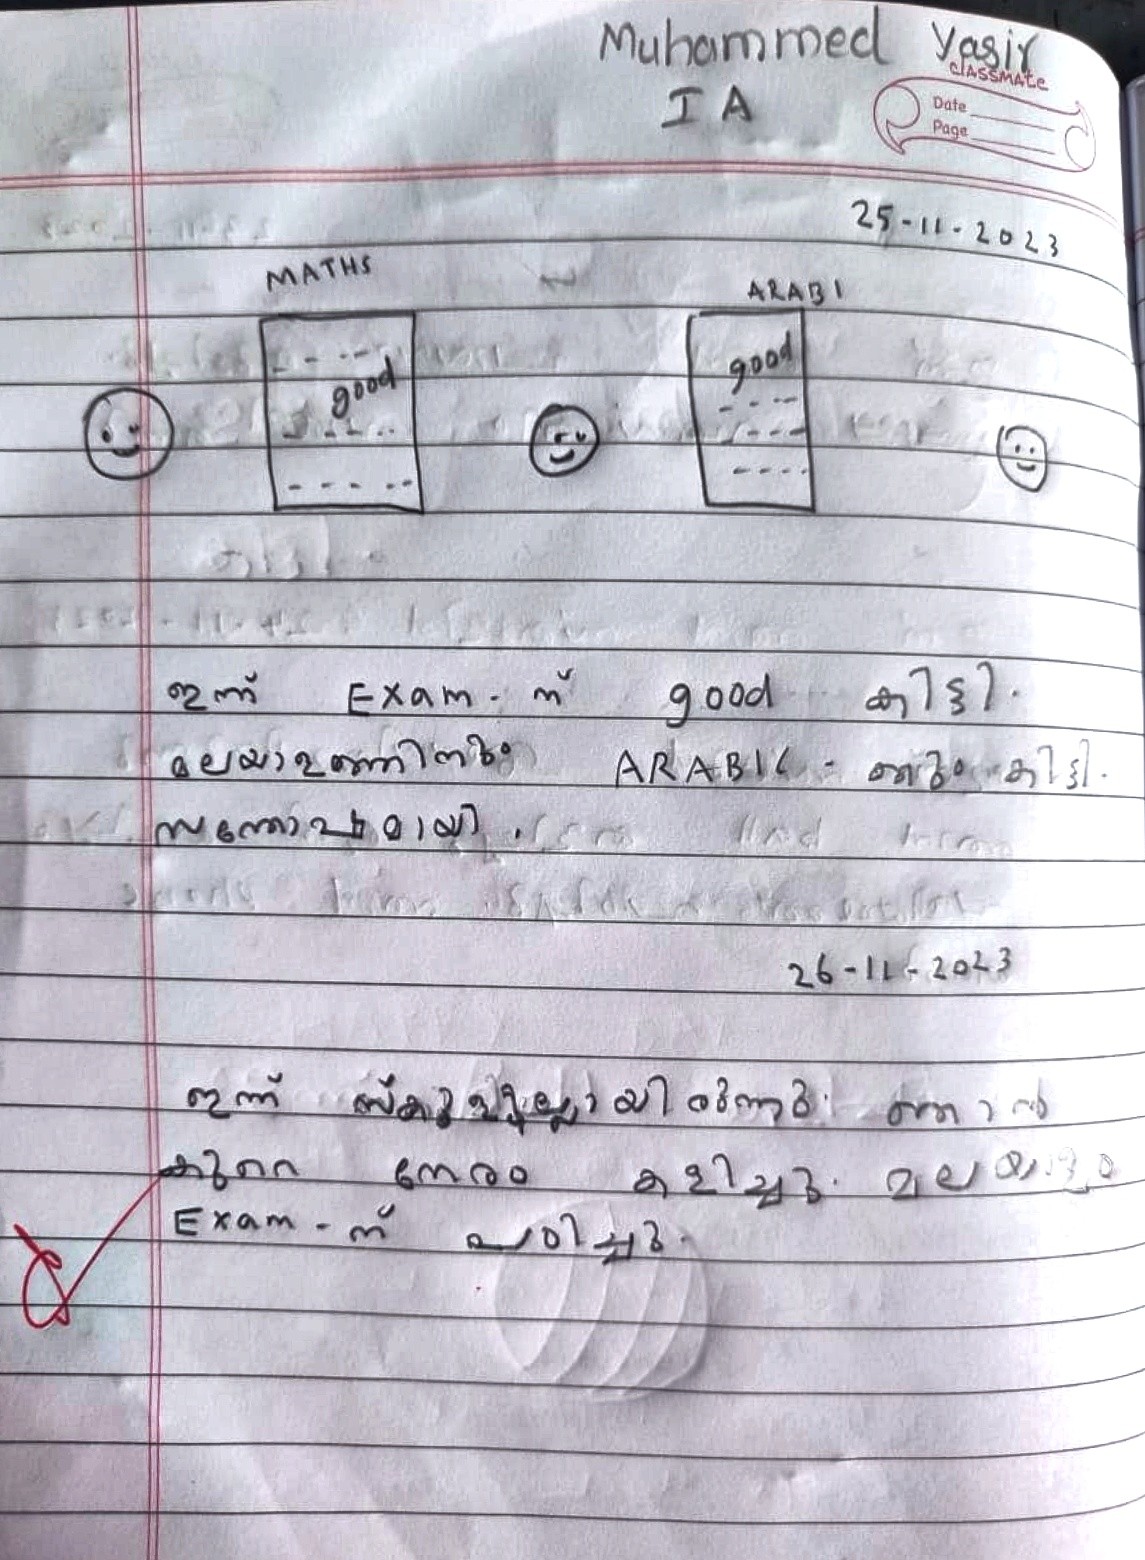 Muhammed Yasir
I A
CLASSMATE
Date
Page
25-11-2023
MATHS ARABI
good good
ഇന്ന് Exam-ന് good കിട്ടി.
മലയാളത്തിനും ARABIC - ത്തും കിട്ടി.
സന്തോഷമായി.
26-11-2023
ഇന്ന് സ്കൂളുല്ലായിരുന്നു. ഞാൻ
കുറെ നേരം കളിച്ചു. മലയാളം
Exam-ന് പഠിച്ചു.